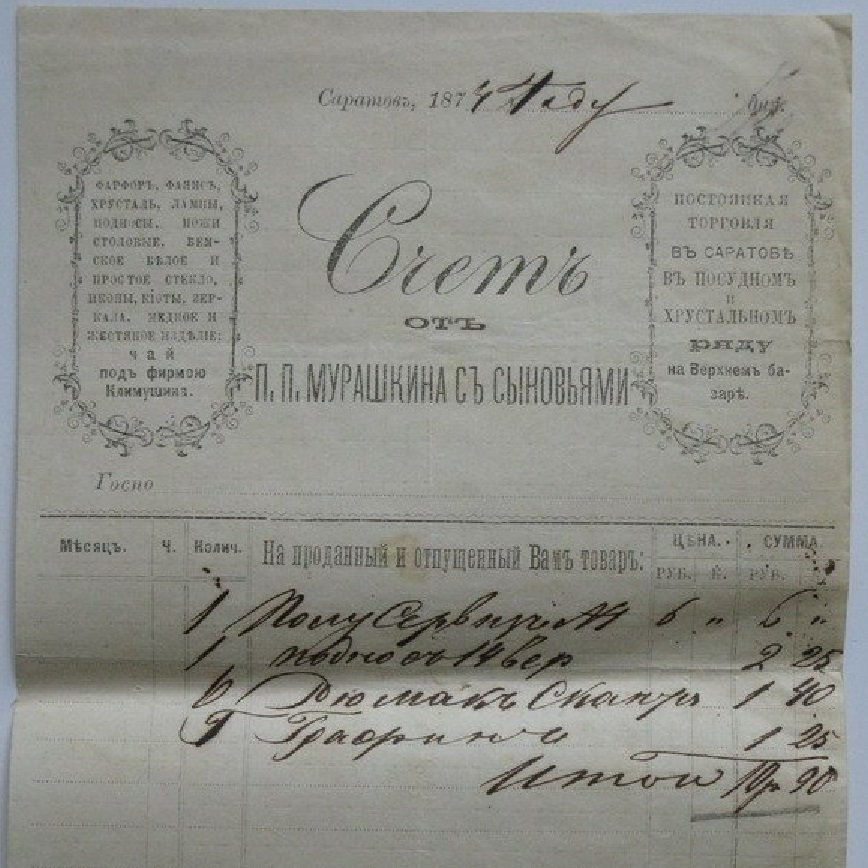 Саратовъ, 1874 Году
ФАРФОРЪ, ФАЯНСЪ,
ХРУСТАЛЬ, ЛАМПЫ,
ПОДНОСЫ, НОЖИ
СТОЛОВЫЕ, БЕМ-
СКОЕ БѢЛОЕ И
ПРОСТОЕ СТЕКЛО,
ИКОНЫ, КІОТЫ, ЗЕР-
КАЛА, МЕДНОЕ И
ЖЕСТЯНОЕ ИЗДѢЛІЕ;
ЧАЙ
ПОДЪ ФИРМОЮ
Климушина.
Счетъ
ОТЪ
П. П. МУРАШКИНА СЪ СЫНОВЬЯМИ
ПОСТОЯННАЯ
ТОРГОВЛЯ
ВЪ САРАТОВѢ
ВЪ ПОСУДНОМЪ
И
ХРУСТАЛЬНОМЪ
РЯДУ
на Верхнемъ ба-
зарѣ.
Госпо
Мѣсяцъ. Ч. Колич. На проданный и отпущенный Вамъ товаръ: ЦѢНА. СУММА
РУБ. К. РУБ.
1 Полу Сервизъ 6 " 6 "
1 подносъ 14 вер 2 25
6 Рюмакъ 1 40
1 Графинъ 1 25
Итого 10р 90